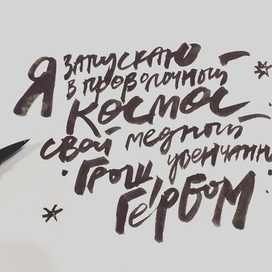 Я запускаю
в проволочный
космос
свой медный
грош увенчанн
гербом